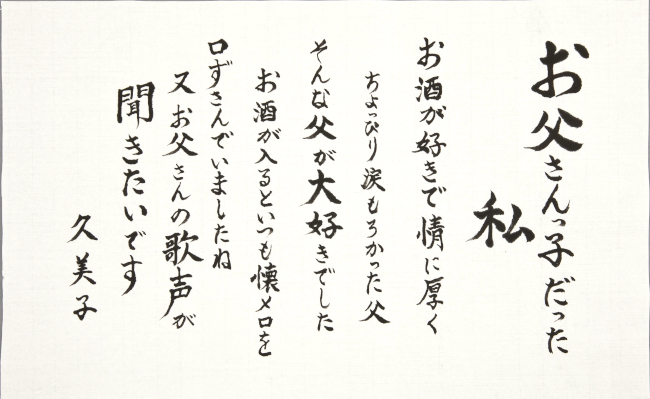 お父さんっ子だった
私
お酒が好きで情に厚く
ちょっぴり涙もろかった父
そんな父が大好きでした
お酒が入るといつも懐メロを
口ずさんでいましたね
又お父さんの歌声が
聞きたいです
久美子